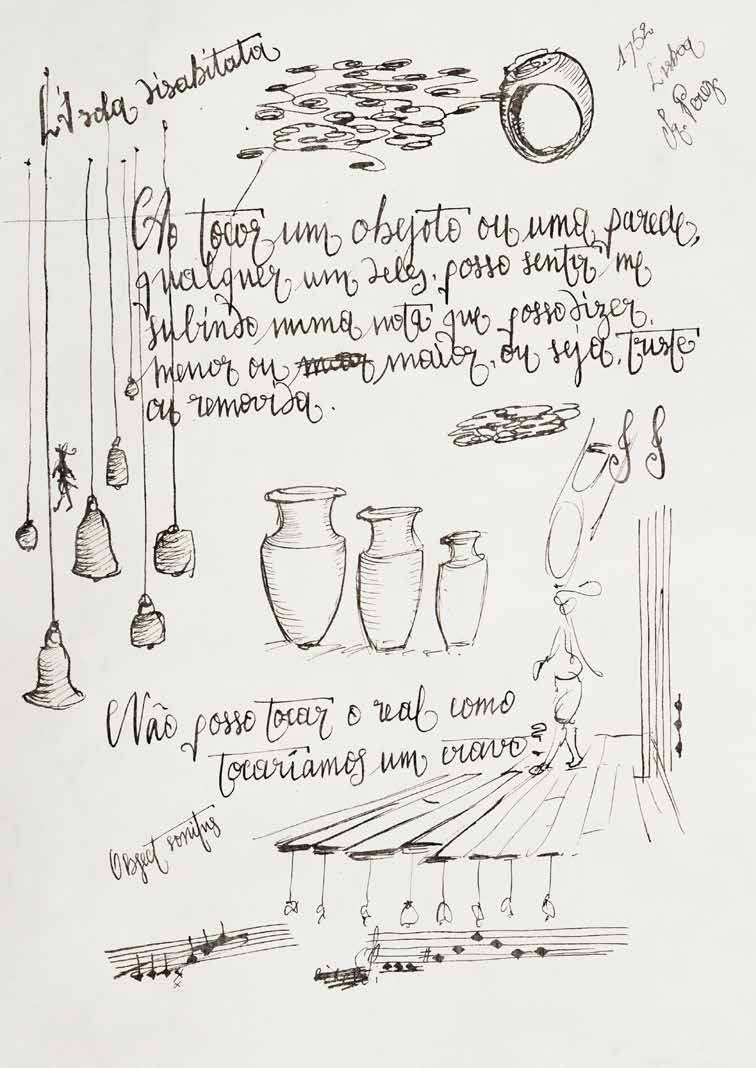 L'Isola disabitata
1752
Lisboa
Perez
Ao tocar um objeto ou uma parede,
qualquer um deles, posso sentir me
subindo numa nota que posso dizer,
menor ou maior, ou seja, triste
ou removida.
Não posso tocar o real como
tocaríamos um cravo
Object sonitus